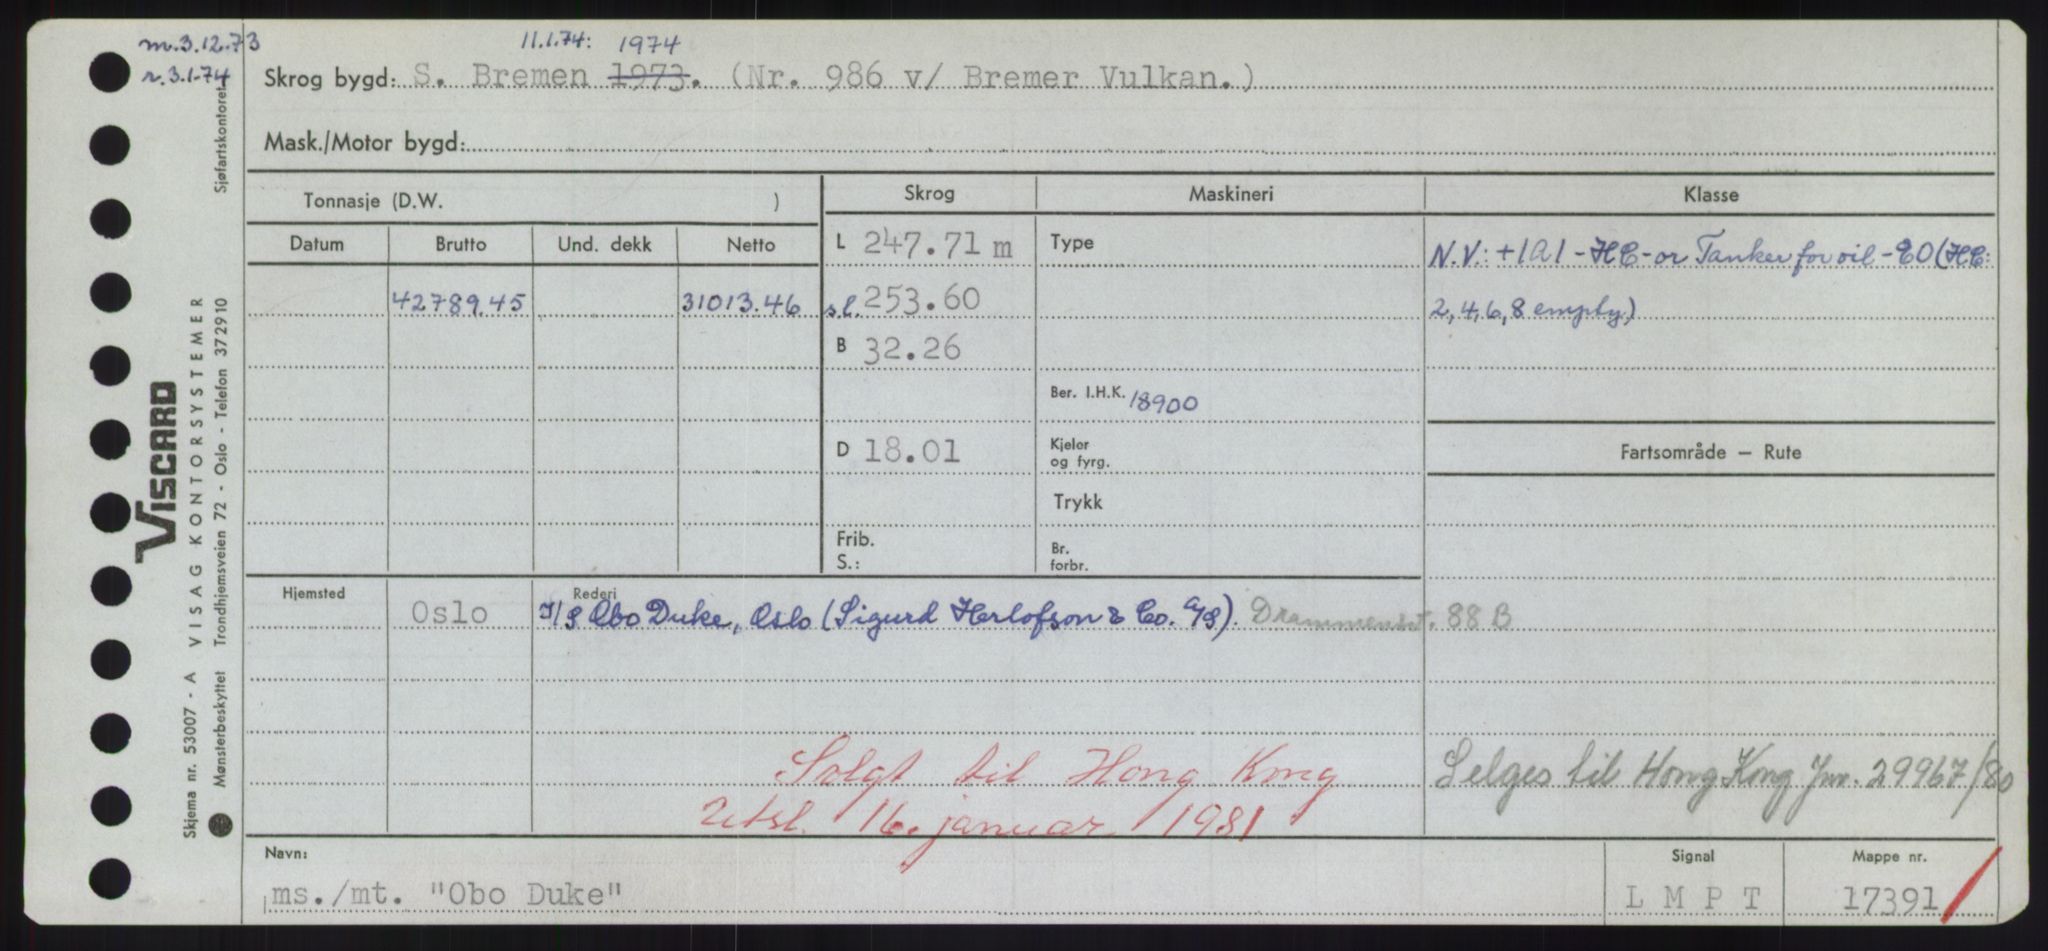 m.3.12.73
r.3.1-74
11.1.74: 1974
Skrog bygd: S. Bremen 1973. (Nr. 986 v/ Bremer Vulkan.)
Mask./Motor bygd:
Sjøfartskontoret
Tonnasje (D.W. )
Skrog
Maskineri
Klasse
Datum
Brutto
Und. dekk
Netto
42789.45
31013.46
L 247.71 m
s.l. 253.60
B 32.26
D 18.01
Frib.
S.:
Type
Ber. I.H.K. 18900
Kjeler
og fyrg.
Trykk
Br.
forbr.
N.V.: +1A1 - HC - or Tanker for oil - EO (HC:
2, 4, 6, 8 empty)
Fartsområde — Rute
Hjemsted
Oslo
Rederi
I/S Obo Duke, Oslo (Sigurd Herlofson & Co. A/S). Drammensv. 88 B
Solgt til Hong Kong
Utsl. 16. januar 1981
Selges til Hong Kong Jnr. 29967/80
Navn:
ms./mt. "Obo Duke"
Signal
L M P T
Mappe nr.
17391
VISCARD
Skjema nr. 53007 - A VISAG KONTORSYSTEMER
Mønsterbeskyttet Trondhjemsveien 72 - Oslo - Telefon 372910